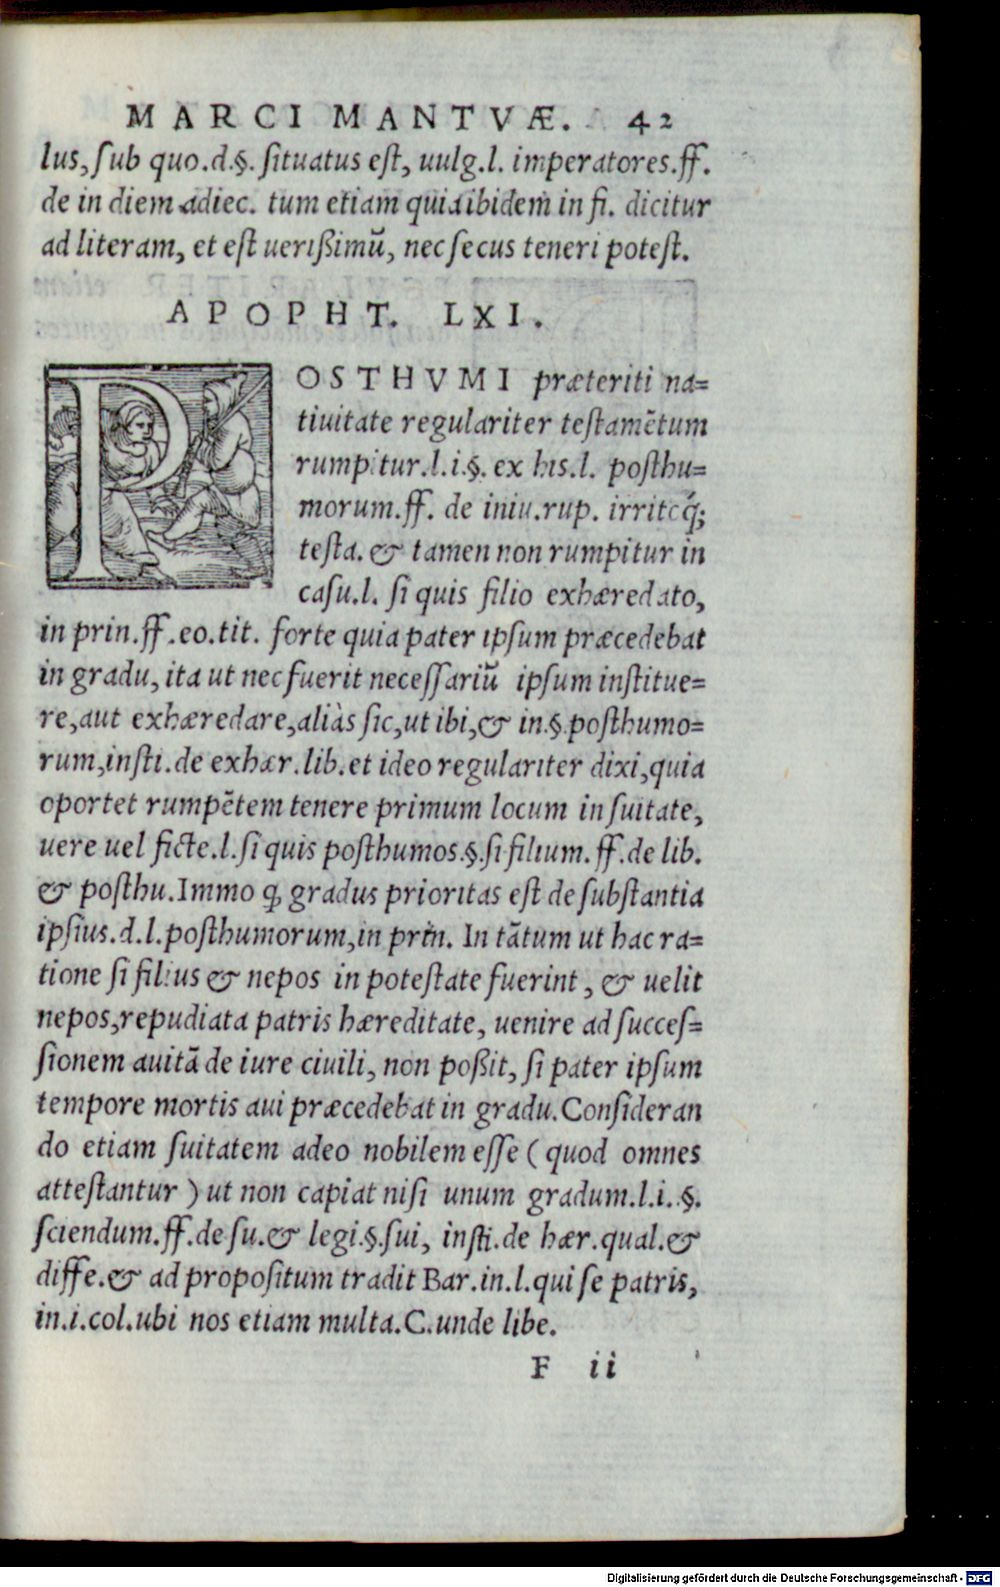 MARCI MANTVÆ. 42
lus, sub quo.d.§. situatus est, uulg.l. imperatores.ff.
de in diem adiec. tum etiam quia ibidem in fi. dicitur
ad literam, et est uerißimũ, nec secus teneri potest.
APOPHT. LXI.
POSTHVMI præteriti na=
tiuitate regulariter testamẽtum
rumpitur.l.i.§. ex his.l. posthu=
morum.ff. de iniu.rup. irritoq́;
testa. & tamen non rumpitur in
casu.l. si quis filio exhæredato,
in prin.ff.eo.tit. forte quia pater ipsum præcedebat
in gradu, ita ut nec fuerit necessariũ ipsum institue=
re, aut exhæredare, aliàs sic, ut ibi, & in.§.posthumo=
rum, insti.de exhær.lib.et ideo regulariter dixi, quia
oportet rumpẽtem tenere primum locum in suitate,
uere uel ficte.l.si quis posthumos.§.si filium.ff.de lib.
& posthu.Immo ꝗ gradus prioritas est de substantia
ipsius.d.l.posthumorum, in prin. In tãtum ut hac ra=
tione si filius & nepos in potestate fuerint, & uelit
nepos, repudiata patris hæreditate, uenire ad succes=
sionem auitã de iure ciuili, non poßit, si pater ipsum
tempore mortis aui præcedebat in gradu.Consideran
do etiam suitatem adeo nobilem esse (quod omnes
attestantur) ut non capiat nisi unum gradum.l.i.§.
sciendum.ff.de su.& legi.§.sui, insti.de hær.qual.&
diffe.& ad propositum tradit Bar.in.l.qui se patris,
in.i.col.ubi nos etiam multa.C.unde libe.
F ii
Digitalisierung gefördert durch die Deutsche Forschungsgemeinschaft - DFG